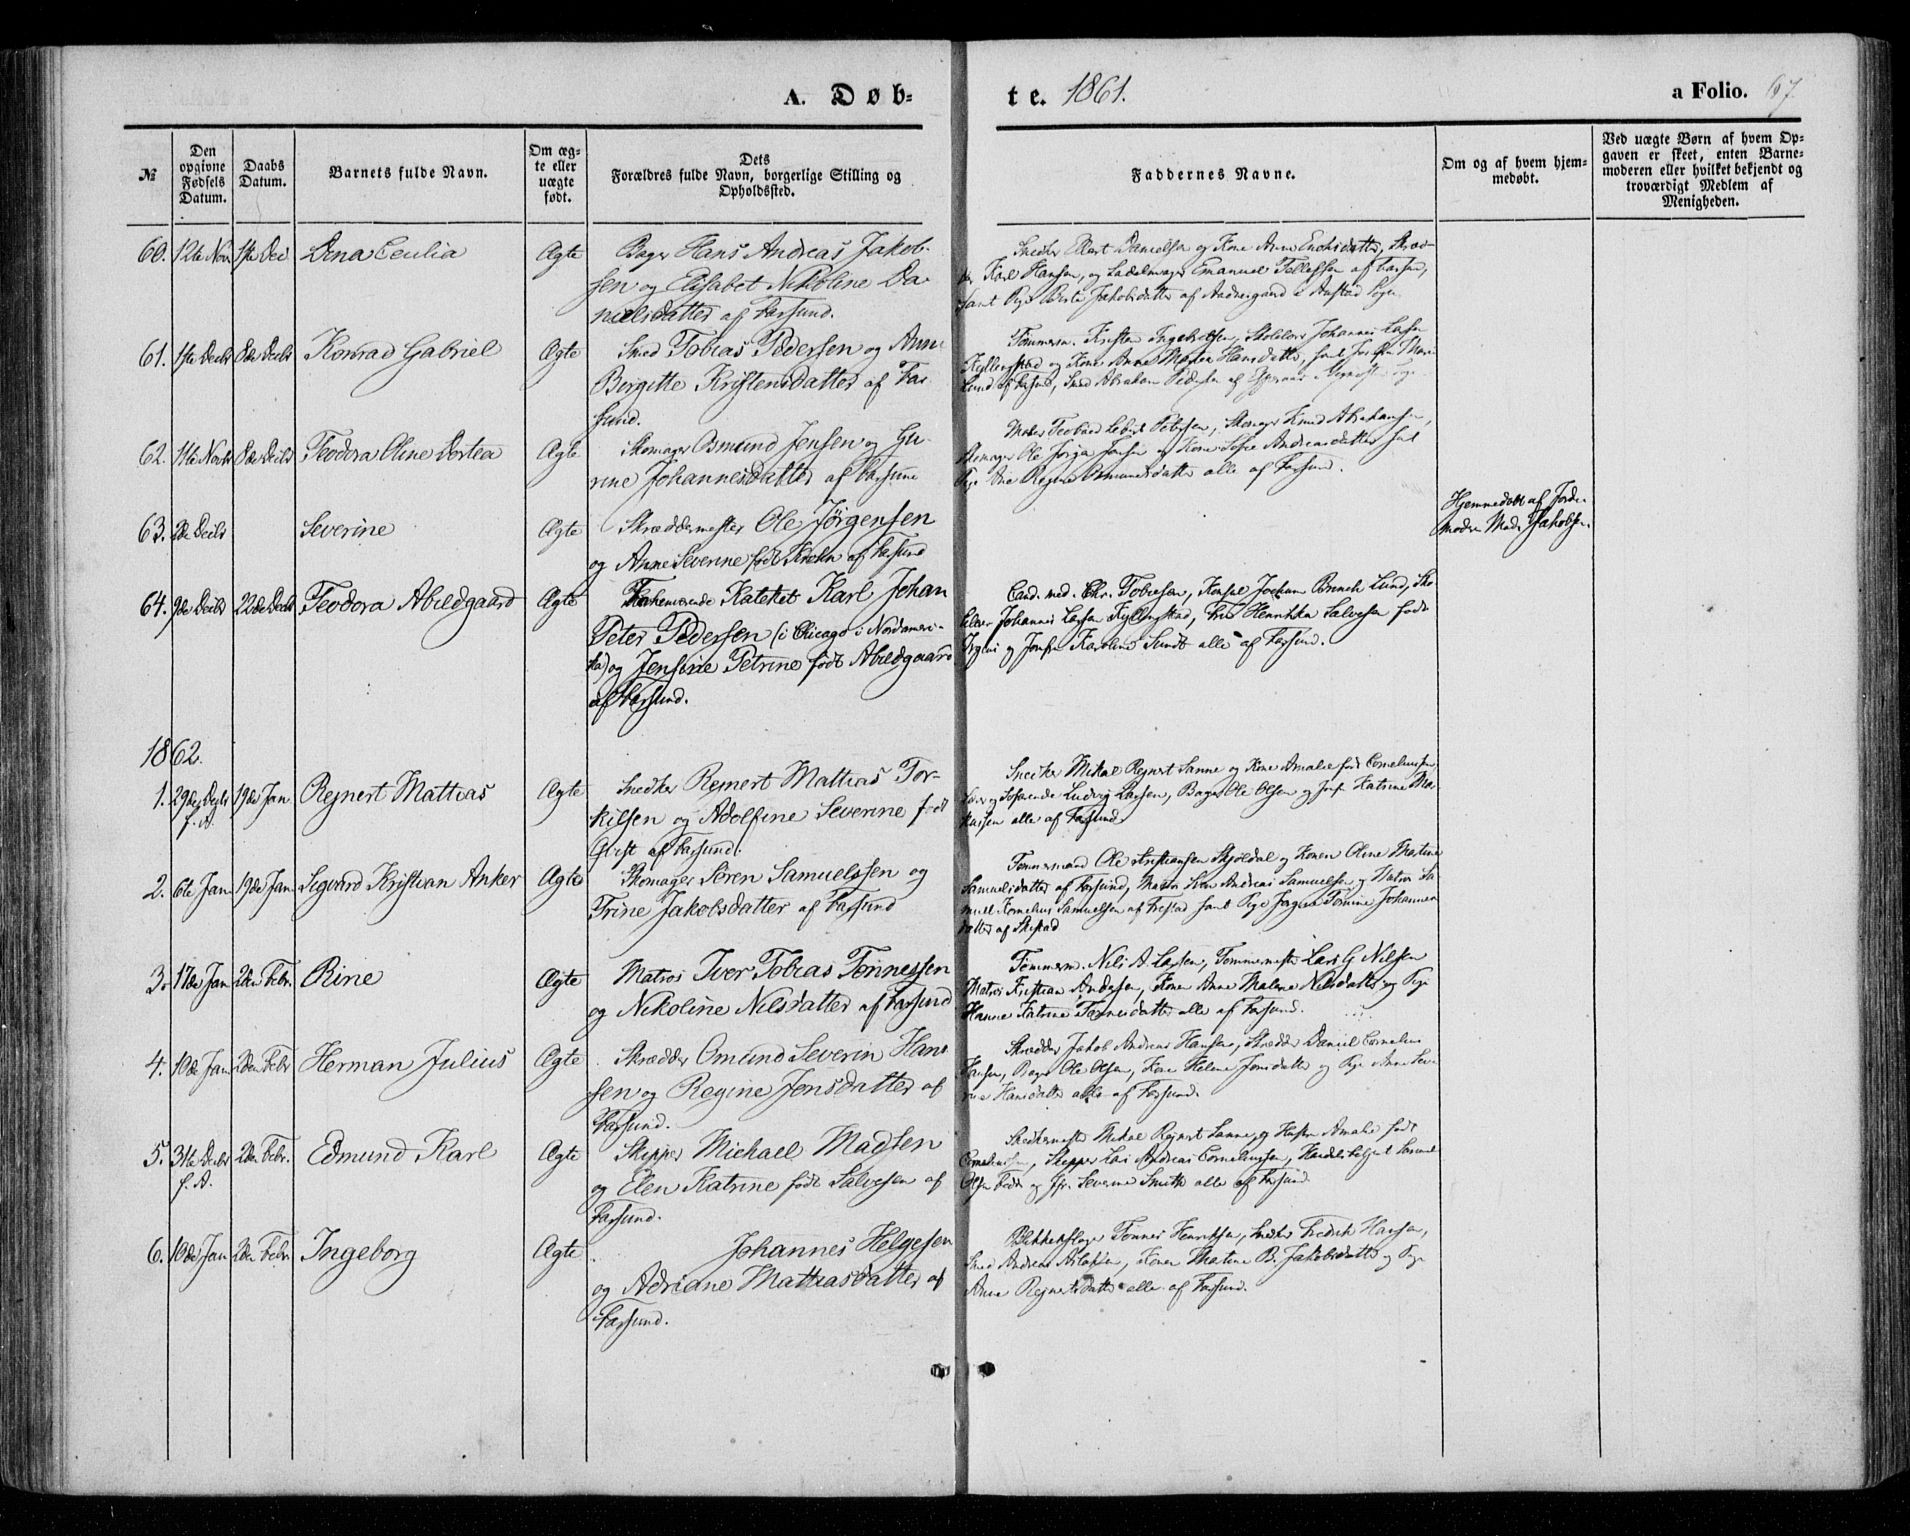 A. Døb-
te. 1861.
a Folio. 67.
№
Den opgivne Fødsels Datum.
Daabs Datum.
Barnets fulde Navn.
Om ægte eller uægte født.
Dets Forældres fulde Navn, borgerlige Stilling og Opholdssted.
Faddernes Navne.
Om og af hvem hjemmedøbt.
Ved uægte Børn af hvem Opgaven er skeet, enten Barnemoderen eller hvilket bekjendt og troværdigt Medlem af Menigheden.
60. 12te Nov 1ste Dec Dina Cecilia Ægte Bager Hans Andreas Jakob-
sen og Elisabet Nikoline Da-
nielsdatter af Farsund.
Snedker Danielsen og Kone Anne
Karl Hansen, og Sadelmager Emanuel Tellefsen af Farsund,
samt Pige Berte Jakobsdatter af i Sogn
61. 1ste Decbr 8de Decbr Konrad Gabriel Ægte Smed Tobias Pedersen og Anne
Borgitte Kristensdatter af Far
sund.
Tømmerm. Kristen Ingebretsen, Johannes Larsen
Kyllingstad og Kone Anne Hansdatter,
Lund af Farsund, Smed Abraham Pedersen af
62. 11te Novbr 8de Decbr Teodora Oline Dortea Ægte Skomager Osmund Jensen og Gu-
rine Johannesdatter af Farsund
Petersen, Skomager Knud Abrahamsen,
Skomager Ole Kone Andreasdatter samt
Pige Regine Osmundsdatter alle af Farsund.
63. 2de Decbr Severine Ægte Skræddermester Ole Jørgensen
og Anne Severine født af Farsund
Hjemmedøbt af Jorde-
moder Mad. Jakobsen.
64. 9de Decbr 22de Decbr Teodora Abildgaard Ægte Kateket Karl Johan
Peter Pedersen (i Chicago i Nordameri-
ka) og Jensine Petrine født Abildgaard
af Farsund.
Cand. med. Chr. Tobiesen, Konsul Jochum Brinch Lund, Sko-
lelærer Johannes Larsen Kyllingstad, Fru Henrikka Salvesen født
og Jomfr Karoline Sundt alle af Farsund.
1862.
1. 29de Decbr 19de Jan Rejnert Mattias Ægte Snedker Rejnert Mattias Tor-
f. A.
kilsen og Adolfine Severine født
Qvist af Farsund.
Snedker Mikal Rejnert Sanne og Kone Amalie født Corneliussen,
Søfarende Ludvig Larsen, Bager Ole Olsen og Jmfr Katrine Mar-
kussen alle af Farsund
2. 6te Jan 19de Jan Sigvard Kristian Anker Ægte Skomager Søren Samuelssen og
Trine Jakobsdatter af Farsund
Tømmermand Ole Kristiansen Skjoldal og Konen Oline Martine
Samuelsdatter af Farsund, Matros Andreas Samuelsen og Matros Sa-
muel Kornelius Samuelsen af samt Pige Tomine Johannes
datter af
3. 17de Jan 2den Febr. Rine Ægte Matros Iver Tobias Tønnessen
og Nikoline Nilsdatter af Farsund
Tømmerm. Nils A. Larsen, Tømmermester Lars G Nilsen
Matros Kristian Andersen, Konen Anne Malene Nilsdatter og Pige
Hanne Katrine Tønnesdatter alle af Farsund.
4. 10de Jan 2den Febr Herman Julius Ægte Skrædder Omund Severin Han-
sen og Regine Jensdatter af
Farsund.
Skrædder Jakob Andreas Hansen, Skrædder Daniel Cornelius
Hansen, Bager Ole Olsen, Kone Helene Jensdatter og Pige Anne Seve-
rine Hansdatter alle af Farsund.
5. 31te Decbr 2den Febr. Edmund Karl Ægte Skipper Michael Madsen
f. A.
og Elen Katrine født Salvesen af
Farsund.
Snedkermester Mikal Rejnert Sanne og Hustru Amalie født
Corneliussen, Skipper Andreas Corneliussen, Handelsbetjent
Olsen og Jfr. Severine Smith alle af Farsund.
6. 10de Jan 2den Febr Ingeborg Ægte Johannes Helgesen
og Adriane Mattiasdatter af
Farsund.
Blikkenslager Tønnes Henriksen, Snedker Fredrik Hansen,
Smed Andreas Aslaksen, Konen Martine B. Jakobsdatter og Pige
Anne Rejnertsdatter alle af Farsund.